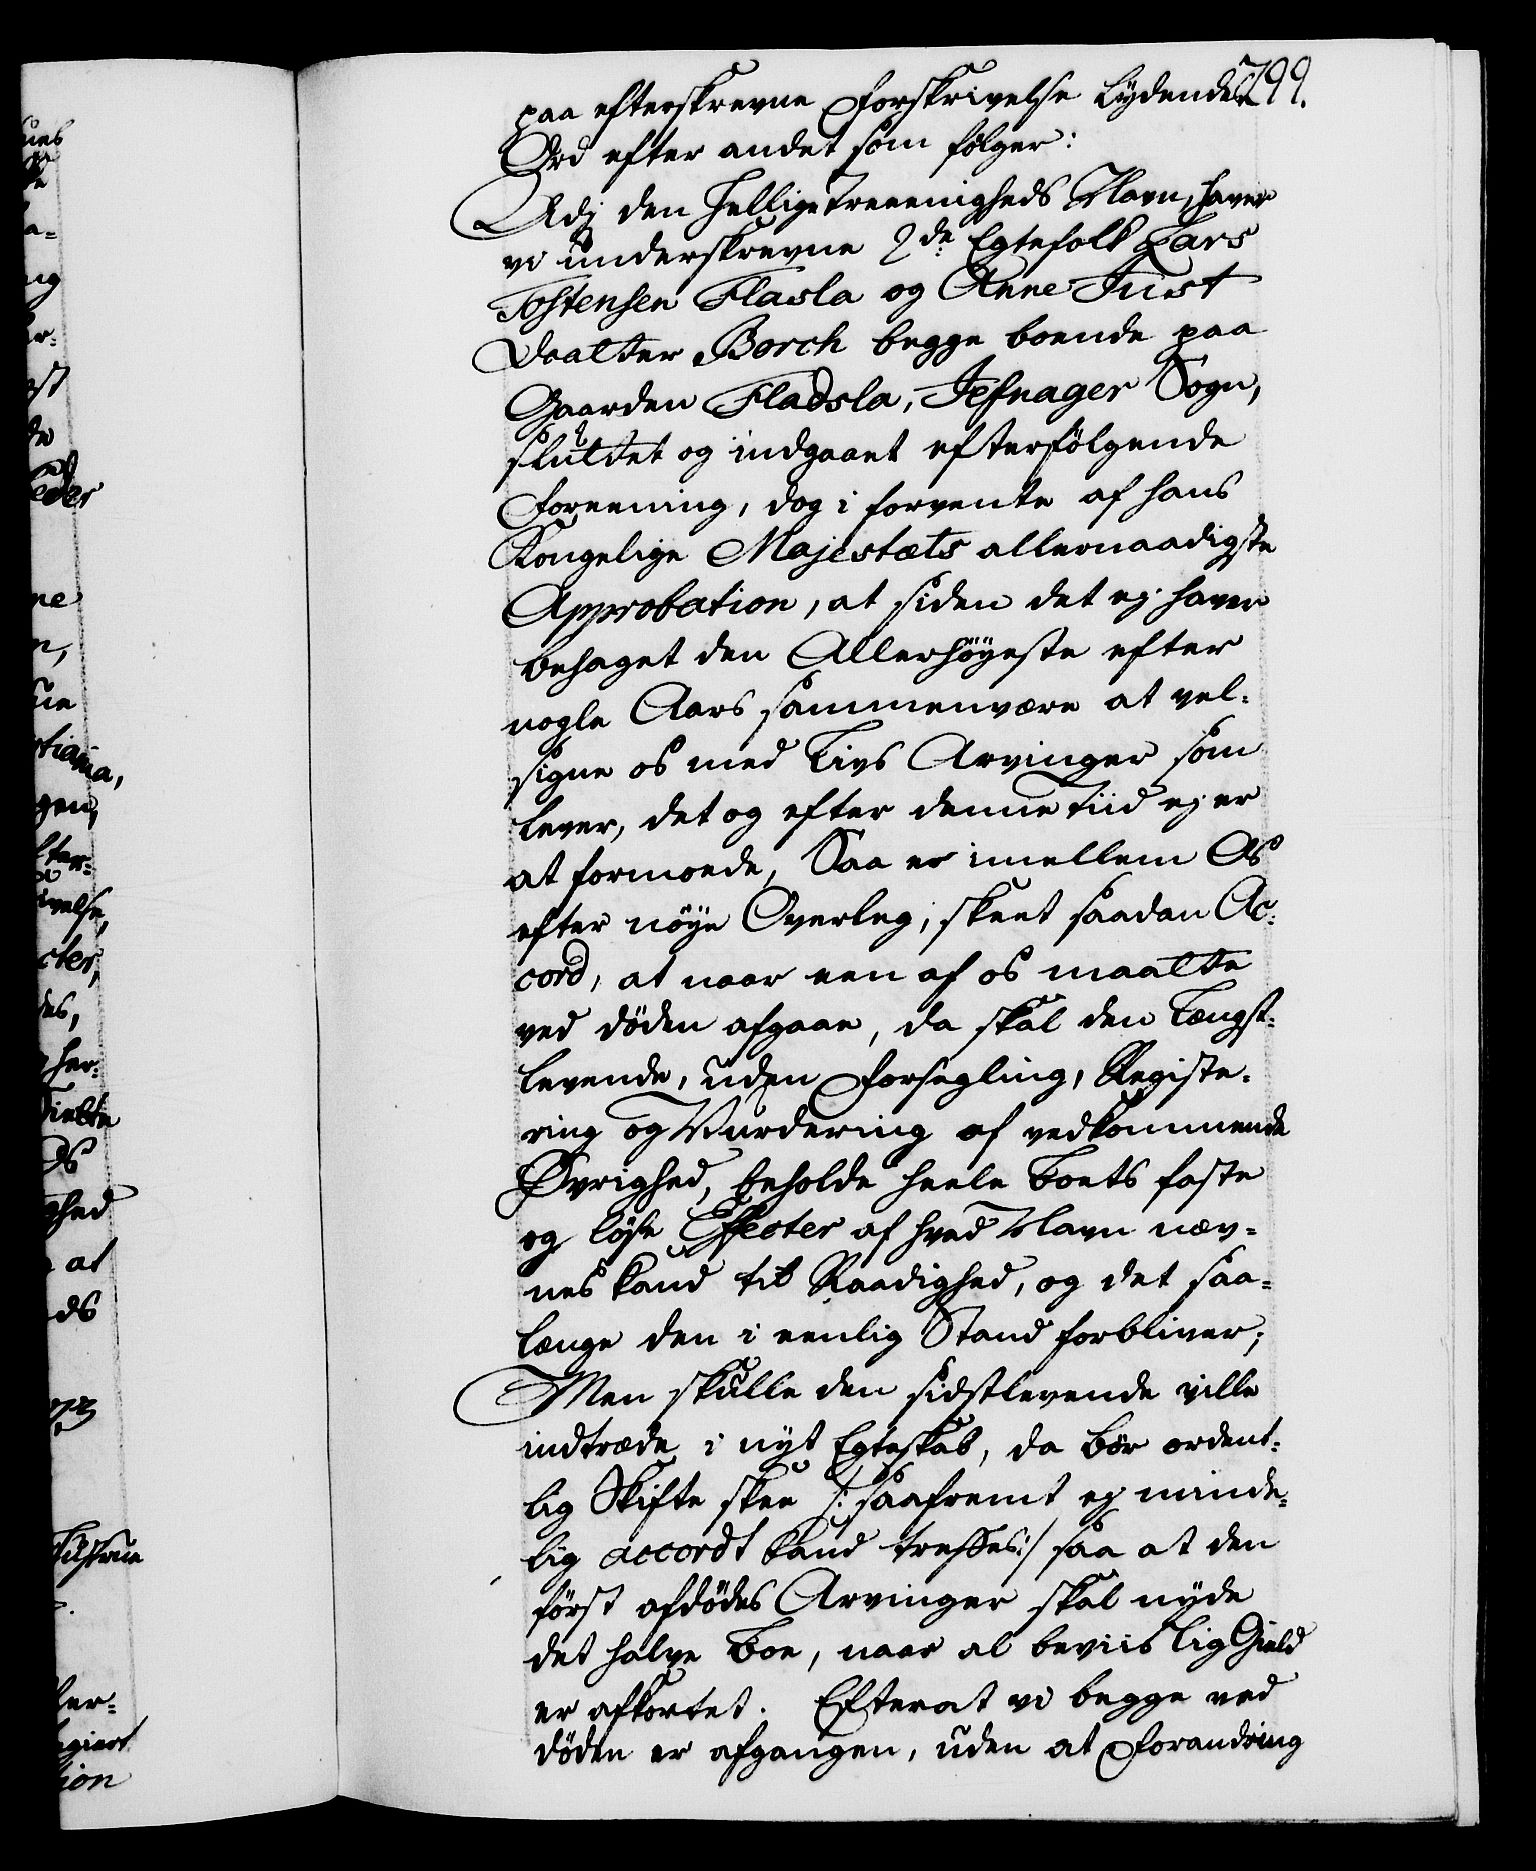 799.
paa efterskrevne Forskrivelse lydendes
Ord efter andet som følger:
Udj den Hellige Treeenigheds Navn, haver
vi underskrevne 2de Egtefolk Lars
Tostensen Flasla og Anne Just
Daatter Borch begge boende paa
Gaarden Fladsla, Jefnager Sogn,
sluttet og indgaaet efterfølgende
Foreening, dog i forvente af Hans
Kongelige Majestæts allernaadigste
Approbation, at siden det ej haver
behaget den Allerhöyeste efter
nogle Aars sammenvære at vel-
signe os med Livs Arvinger som
lever, det og efter denne Tiid ej er
at formode, Saa er imellem Os
efter nöye Overleg, skeet saadan Ac-
cord, at naar een af os maatte
ved döden afgaae, da skal den Længst-
levende, uden Forsegling, Registe-
ring og Vurdering af vedkommende
Øvrighed, beholde heele Boets faste
og löse Effecter af hvad Navn næv-
nes kand til Raadighed, og det saa-
længe den i eenlig Stand forbliver;
Men skulle den sidstlevende ville
indtræde i nyt Egteskab, da bör ordent-
lig Skifte skee /: saafremt ej minde-
lig accordt kand treffes :/ saa at den
först afdödes Arvinger skal nyde
det halve Boe, naar al beviislig Gield
er afkortet. Efterat vi begge ved
döden er afgangen, uden at Forandring